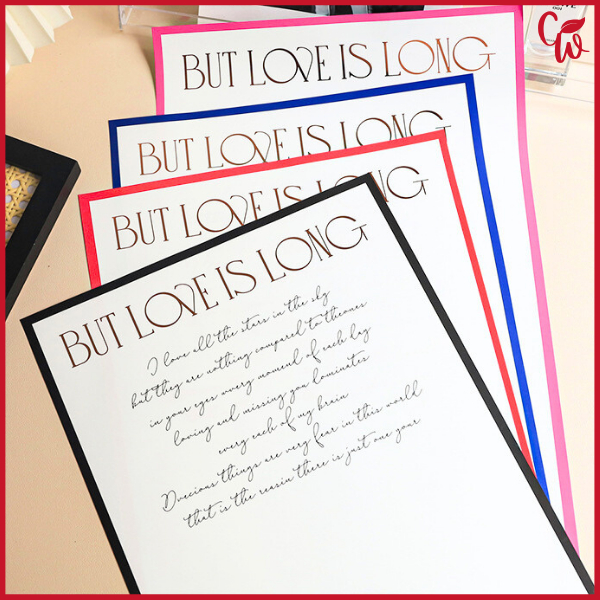 CW
BUT LOVE IS LONG
BUT LOVE IS LONG
BUT LOVE IS LONG
BUT LOVE IS LONG
I love all the stars in the sky
but they are nothing compared to theones
in your eyes wvery momend of each lay
loving and missing you lominates
every each of my brain
Drecious things are very fear in this world
that is the reasin there is just one your